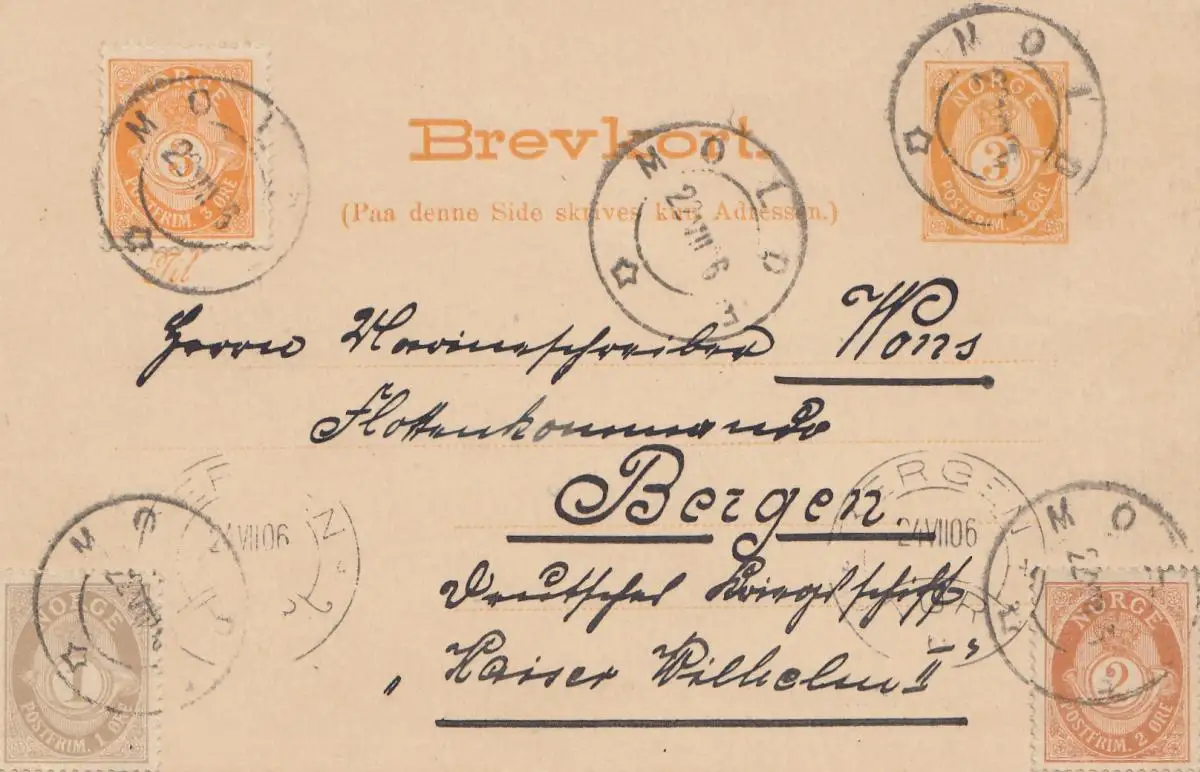 NORGE
3
POSTFRIM. 3 ØRE
MOLDE
22 VII 6
Brevkort.
(Paa denne Side skrives kun Adressen.)
MOLDE
22 VII 6
NORGE
3
POSTFRIM. 3 ØRE
MOLDE
Til
Herrn Marineschreiber Wons
Flottenkommando
Bergen
Deutsches Kriegsschiff
„Kaiser Wilhelm II“
BERGEN
24 VII 06
BERGEN
24 VII 06
MOLDE
22 VII
NORGE
1
POSTFRIM. 1 ØRE
MOLDE
22 VII
NORGE
2
POSTFRIM. 2 ØRE